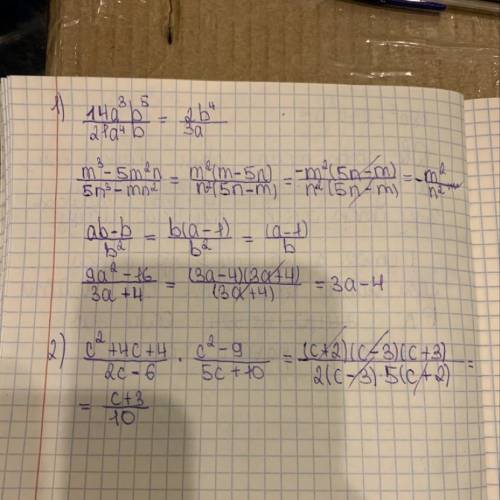 1) 14a³b⁵/21a⁴b = 2b⁴/3a
m³-5m²n/5n³-mn² = m²(m-5n)/n²(5n-m) = -m²(5n-m)/n²(5n-m) = -m²/n²
ab-b/b² = b(a-1)/b² = (a-1)/b
9a²-16/3a+4 = (3a-4)(3a+4)/(3a+4) = 3a-4
2) c²+4c+4/2c-6 · c²-9/5c+10 = (c+2)(c-3)(c+3)/2(c-3)·5(c+2) =
= c+3/10